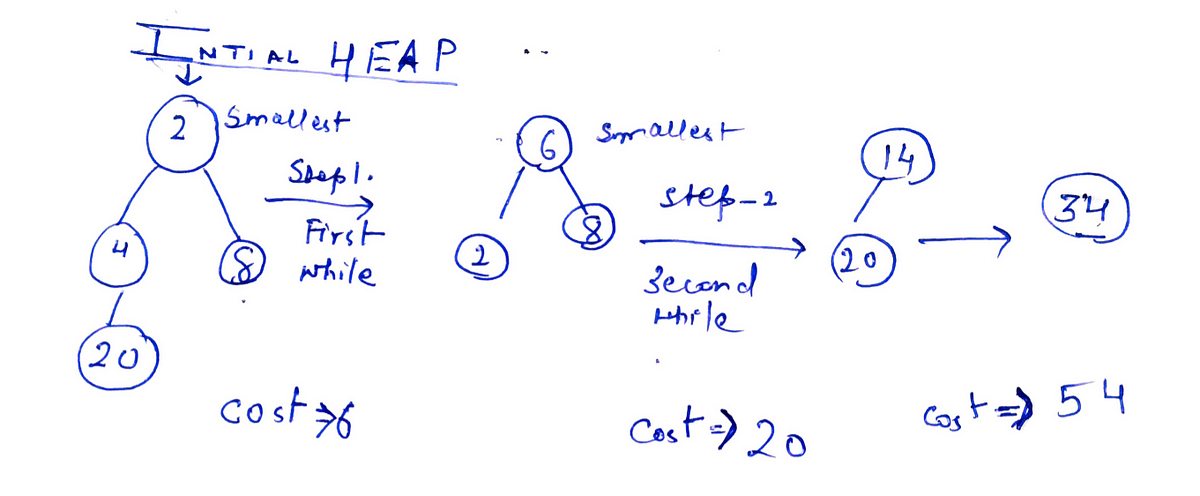 INTIAL HEAP
2 Smallest
4
8
20
Step1.
First
while
cost ⇒ 6
6 Smallest
2
8
step-2
Second
while
Cost ⇒ 20
14
20
34
Cost ⇒ 54